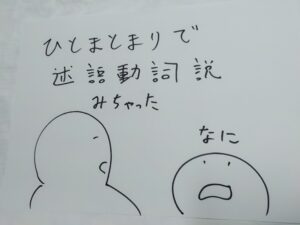 ひとまとまりで
述語動詞説
みちゃった
なに